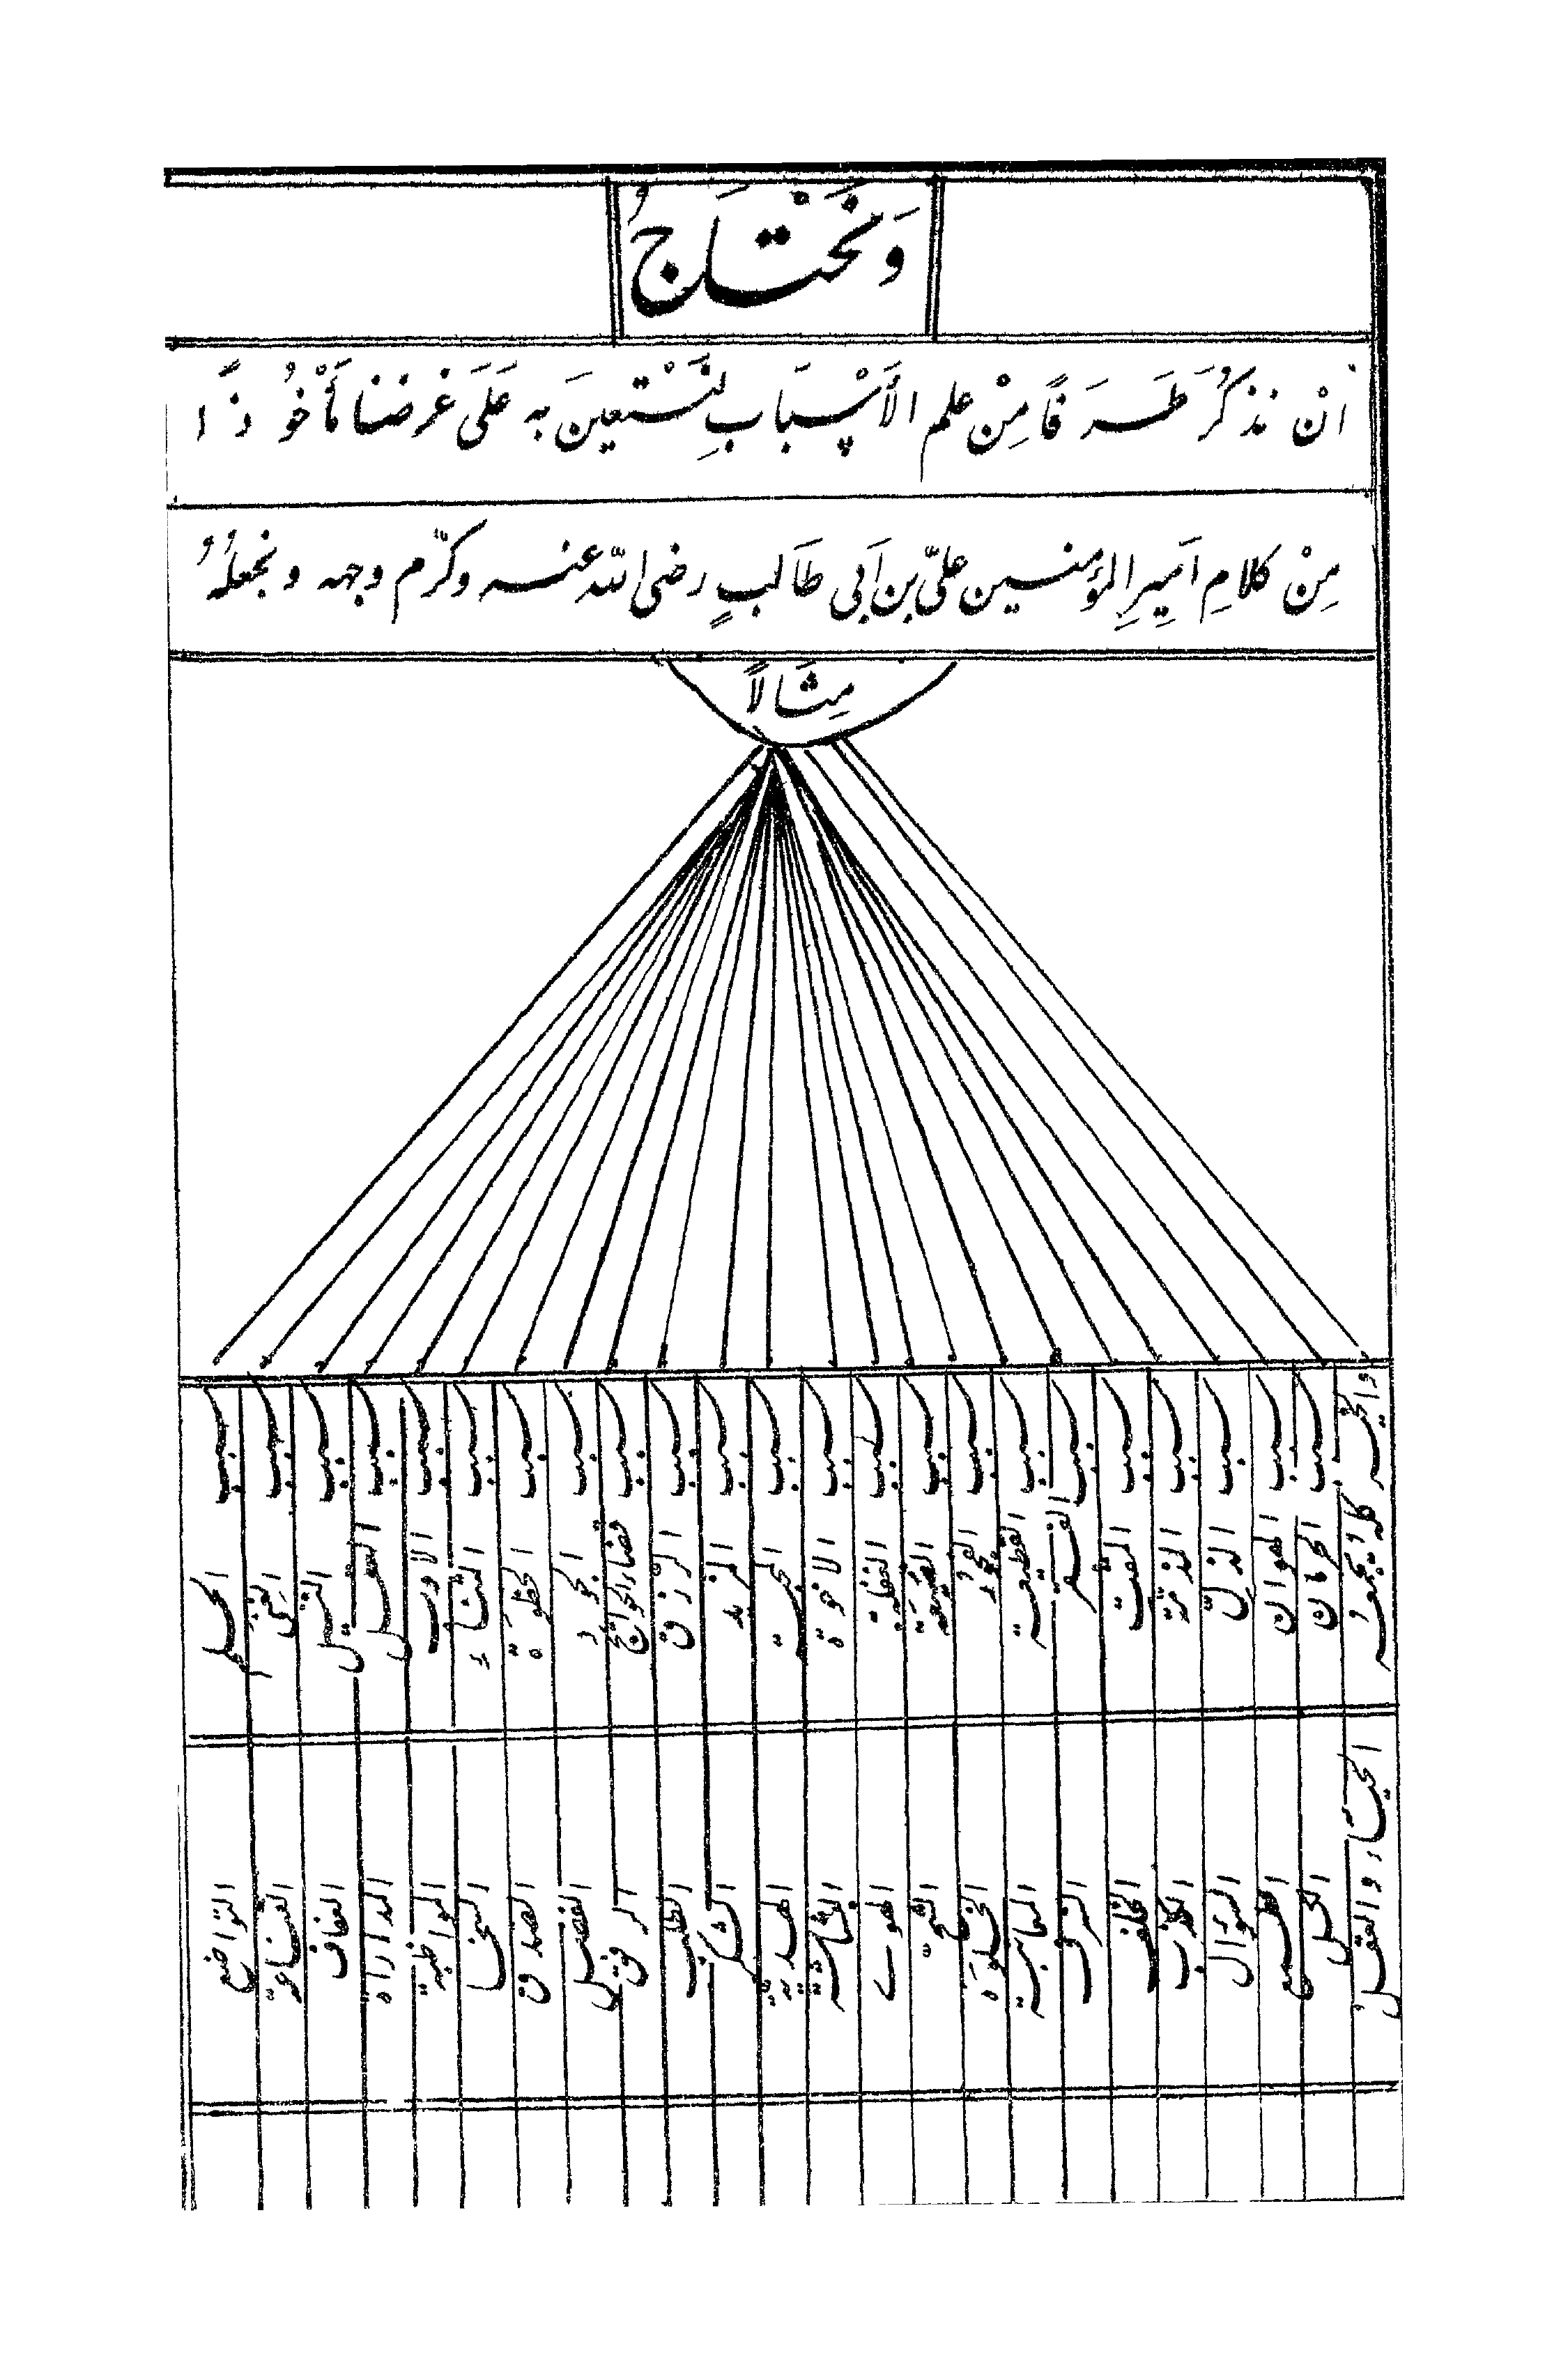 وَنَحْتَاجُ
انْ نذكُرَ طَرَفًا مِنْ علم الأَسْبَابِ لِنَسْتعينَ به عَلَى غرضنا مَأْخُوذًا
مِنْ كلامِ اَميرِ المؤمنين عليّ بن اَبى طَالبٍ رضى الله عنه وكرّم وجهه ونجعلُهُ
مِثَالاً
والخير كله يجمعه الحياء والعقل
سبب الحرمان الكسل
سبب الهوان الطمع
سبب الذل السؤال
سبب المذمّة الكذب
سبب المقت الخلف
سبب الفقر السرف
سبب القطيعة المعاتبة
سبب الفجور الخلوَه
سبب الشحّ
سبب الغفلة الهوى
سبب الاخوة البشاشة
سبب المحبة الهدية
سبب المزيد الشكر
سبب الرّزق الطلب
سبب قضاء الحوائج الرفق
سبب
سبب الحظوَة الصدق
سبب الثناء السخا
سبب الأدب المواظبة
سبب العقل المداراة
سبب النبل العفاف
سبب الغنى القناعة
سبب الحلم التواضع